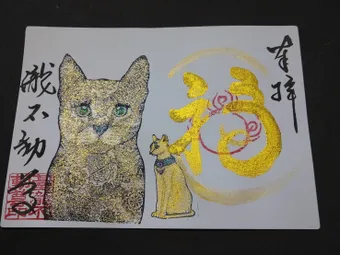 奉拝
福
滝不動尊